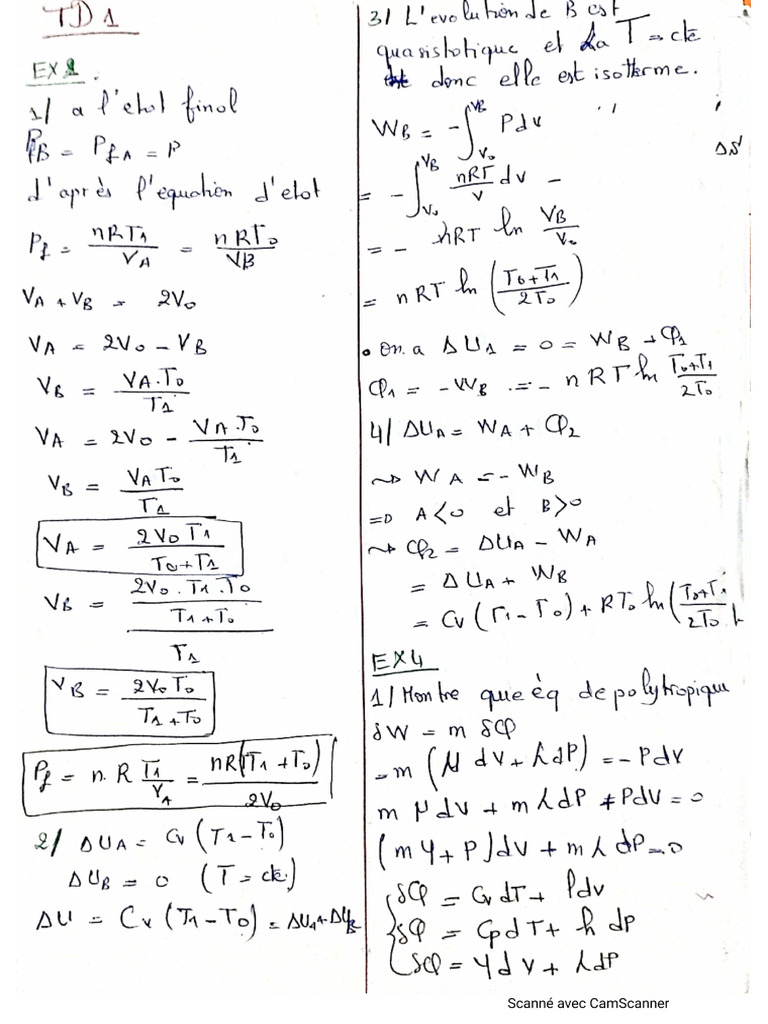 TD1
EX1.
1/ a l'etat final
PfB = PfA = P
d'après l'equation d'etat
Pf = nRT1/VA = nRT0/VB
VA + VB = 2V0
VA = 2V0 - VB
VB = VA.T0/T1
VA = 2V0 - VA.T0/T1
VB = VA T0/T1
VA = 2V0 T1/T0+T1
VB = 2V0.T1.T0/T1+T0/T1
VB = 2V0 T0/T1+T0
Pf = n.R T1/VA = nR(T1+T0)/2V0
2/ ΔUA = Cv (T1-T0)
ΔUB = 0 (T = cte)
ΔU = Cv (T1-T0) = ΔUA+ΔUB
3/ L'evolution de B est
quasistatique et La T = cte
donc elle est isotherme.
WB = -∫V0VB Pdv
ΔS
= -∫V0VB nRT/V dv -
= - nRT ln VB/V0
= nRT ln (T0+T1/2T0)
• On a ΔU1 = 0 = WB + φ1
φ1 = -WB = - nRT ln T0+T1/2T0
4/ ΔUA = WA + φ2
⇝ WA = -WB
⇒ A<0 et B>0
⇝ φ2 = ΔUA - WA
= ΔUA + WB
= Cv (T1-T0) + RT0 ln (T0+T1/2T0
EX4
1/ Montre que éq de polytropique
δW = m δφ
= m (μ dv + λdP) = - Pdv
m μdv + m λdP + Pdv = 0
(m μ + P) dv + m λ dP = 0
δφ = Cv dT + ldv
δφ = Cp dT + h dp
δφ = μdv + λdP
Scanné avec CamScanner